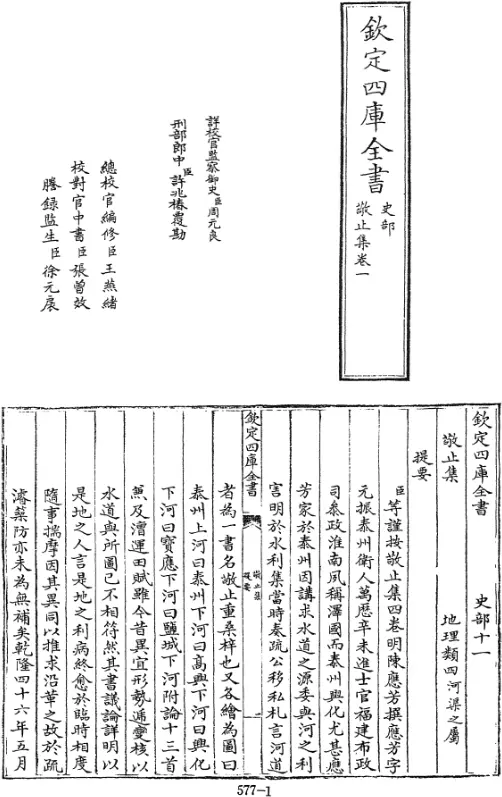 欽定四庫全書
史部
敬止集卷一
詳校官監察御史臣周元良
刑部郎中臣許兆椿覆勘
總校官編修臣王燕緒
校對官中書臣張曾效
謄錄監生臣徐元扆
欽定四庫全書
史部十一
敬止集
地理類四河渠之屬
提要
臣等謹按敬止集四卷明陳應芳撰應芳字
元振泰州衛人萬歷辛未進士官福建布政
司叅政淮南夙稱澤國而泰州興化尤甚應
芳家於泰州因講求水道之源委與河之利
害明於水利集當時奏疏公移私札言河道
欽定四庫全書
敬止集
提要
者為一書名敬止重桑梓也又各繪為圖曰
泰州上河曰泰州下河曰高興下河曰興化
下河曰寶應下河曰鹽城下河附論十三首
無及漕運田賦雖今昔異宜形勢遞變核以
水道與所圖已不相符然其書議論詳明以
是地之人言是地之利病終愈於臨時相度
隨事揣摩因其異同以推求沿革之故於疏
濬築防亦未為無補矣乾隆四十六年五月
577-1